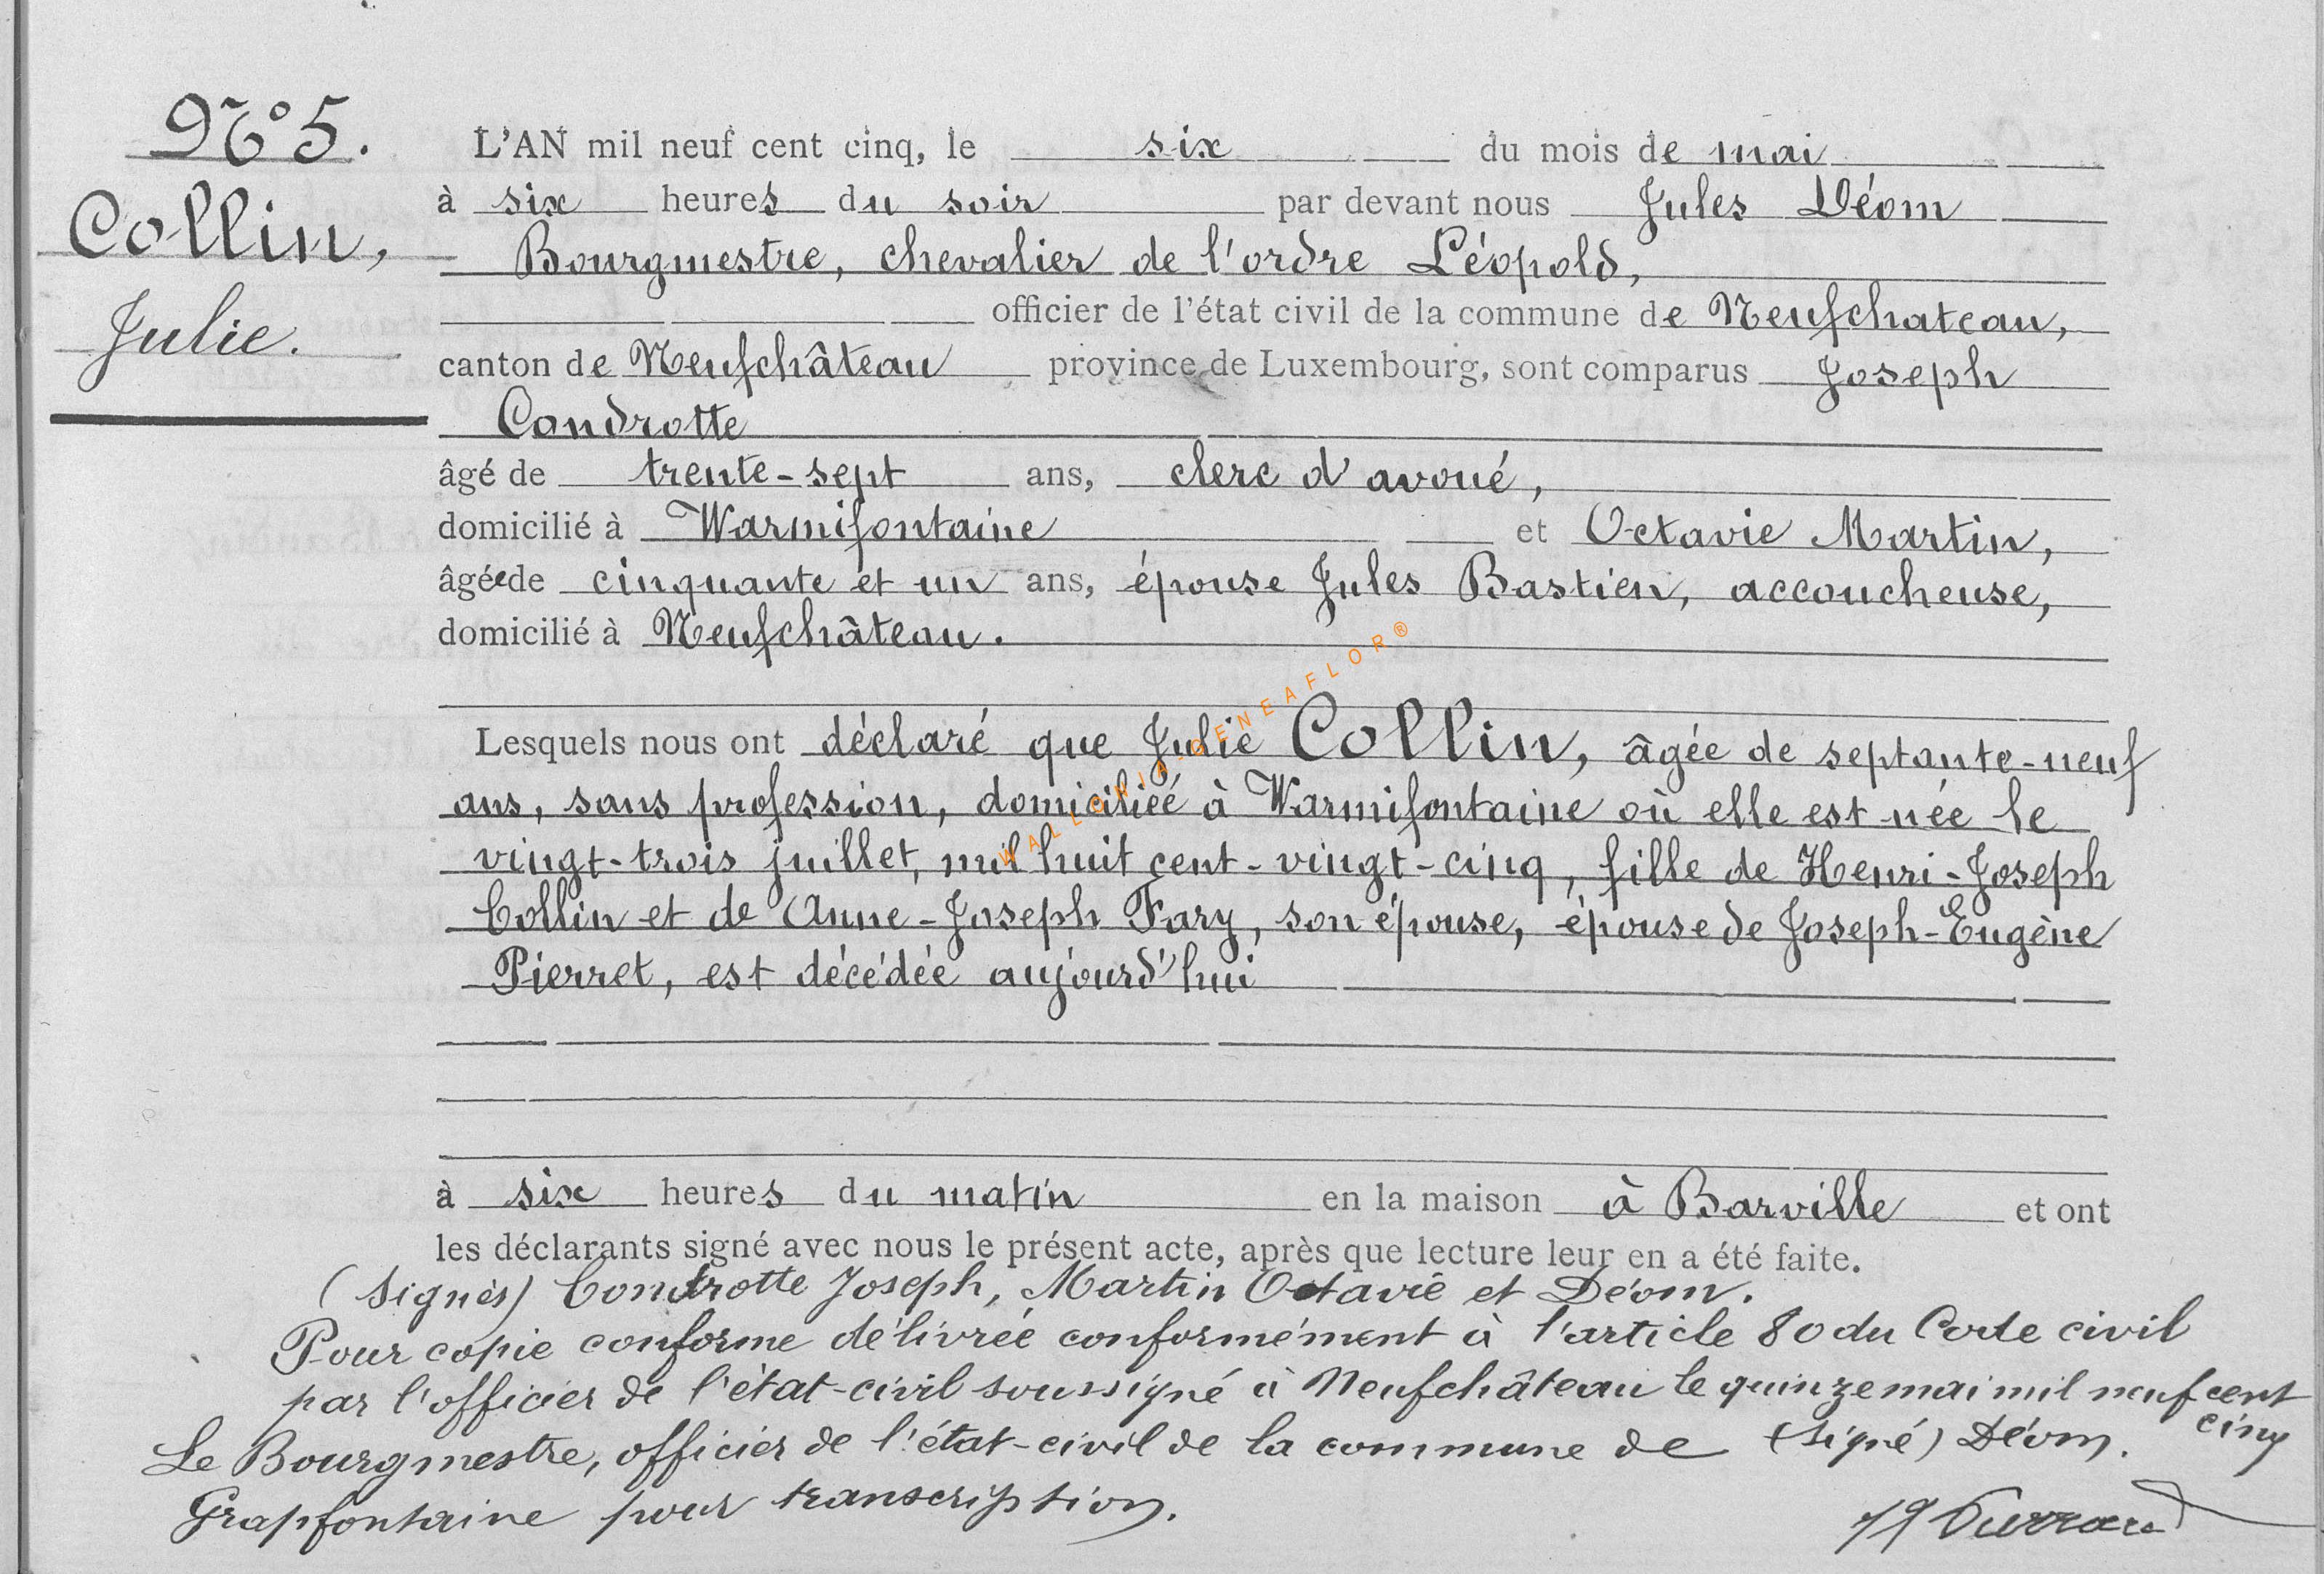 N° 5.
Collin,
Julie.
L'AN mil neuf cent cinq, le six du mois de mai
à six heures du soir par devant nous Jules Déom
Bourgmestre, chevalier de l'ordre Léopold,
officier de l'état civil de la commune de Neufchateau,
canton de Neufchâteau province de Luxembourg, sont comparus Joseph
Condrotte
âgé de trente-sept ans, clerc d'avoué,
domicilié à Warmifontaine et Octavie Martin,
âgée de cinquante et un ans, épouse Jules Bastien, accoucheuse,
domicilié à Neufchâteau.
Lesquels nous ont déclaré que Julie Collin, âgée de septante-neuf
ans, sans profession, domiciliée à Warmifontaine où elle est née le
vingt-trois juillet, mil huit cent-vingt-cinq, fille de Henri-Joseph
Collin et de Anne-Joseph Fary, son épouse, épouse de Joseph-Eugène
Pierret, est décédée aujourd'hui
à six heures du matin en la maison à Barville et ont
les déclarants signé avec nous le présent acte, après que lecture leur en a été faite.
(Signés) Condrotte Joseph, Martin Octavie et Déom.
Pour copie conforme délivrée conformément à l'article 80 du Code civil
par l'officier de l'état-civil soussigné à Neufchâteau le quinze mai mil neuf cent
cinq
Le Bourgmestre, officier de l'état-civil de la commune de (signé) Déom.
Grapfontaine pour transcription.
WALLONIA GENEAFLOR®